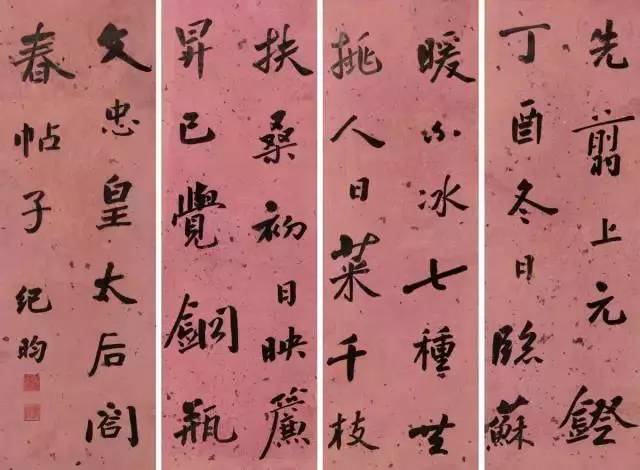 先翦上元鐙
丁酉冬日臨蘇
暖不冰七種共
挑人日菜千枝
扶桑初日映簾
昇已覺銅瓶
文忠皇太后閤
春帖子
紀昀